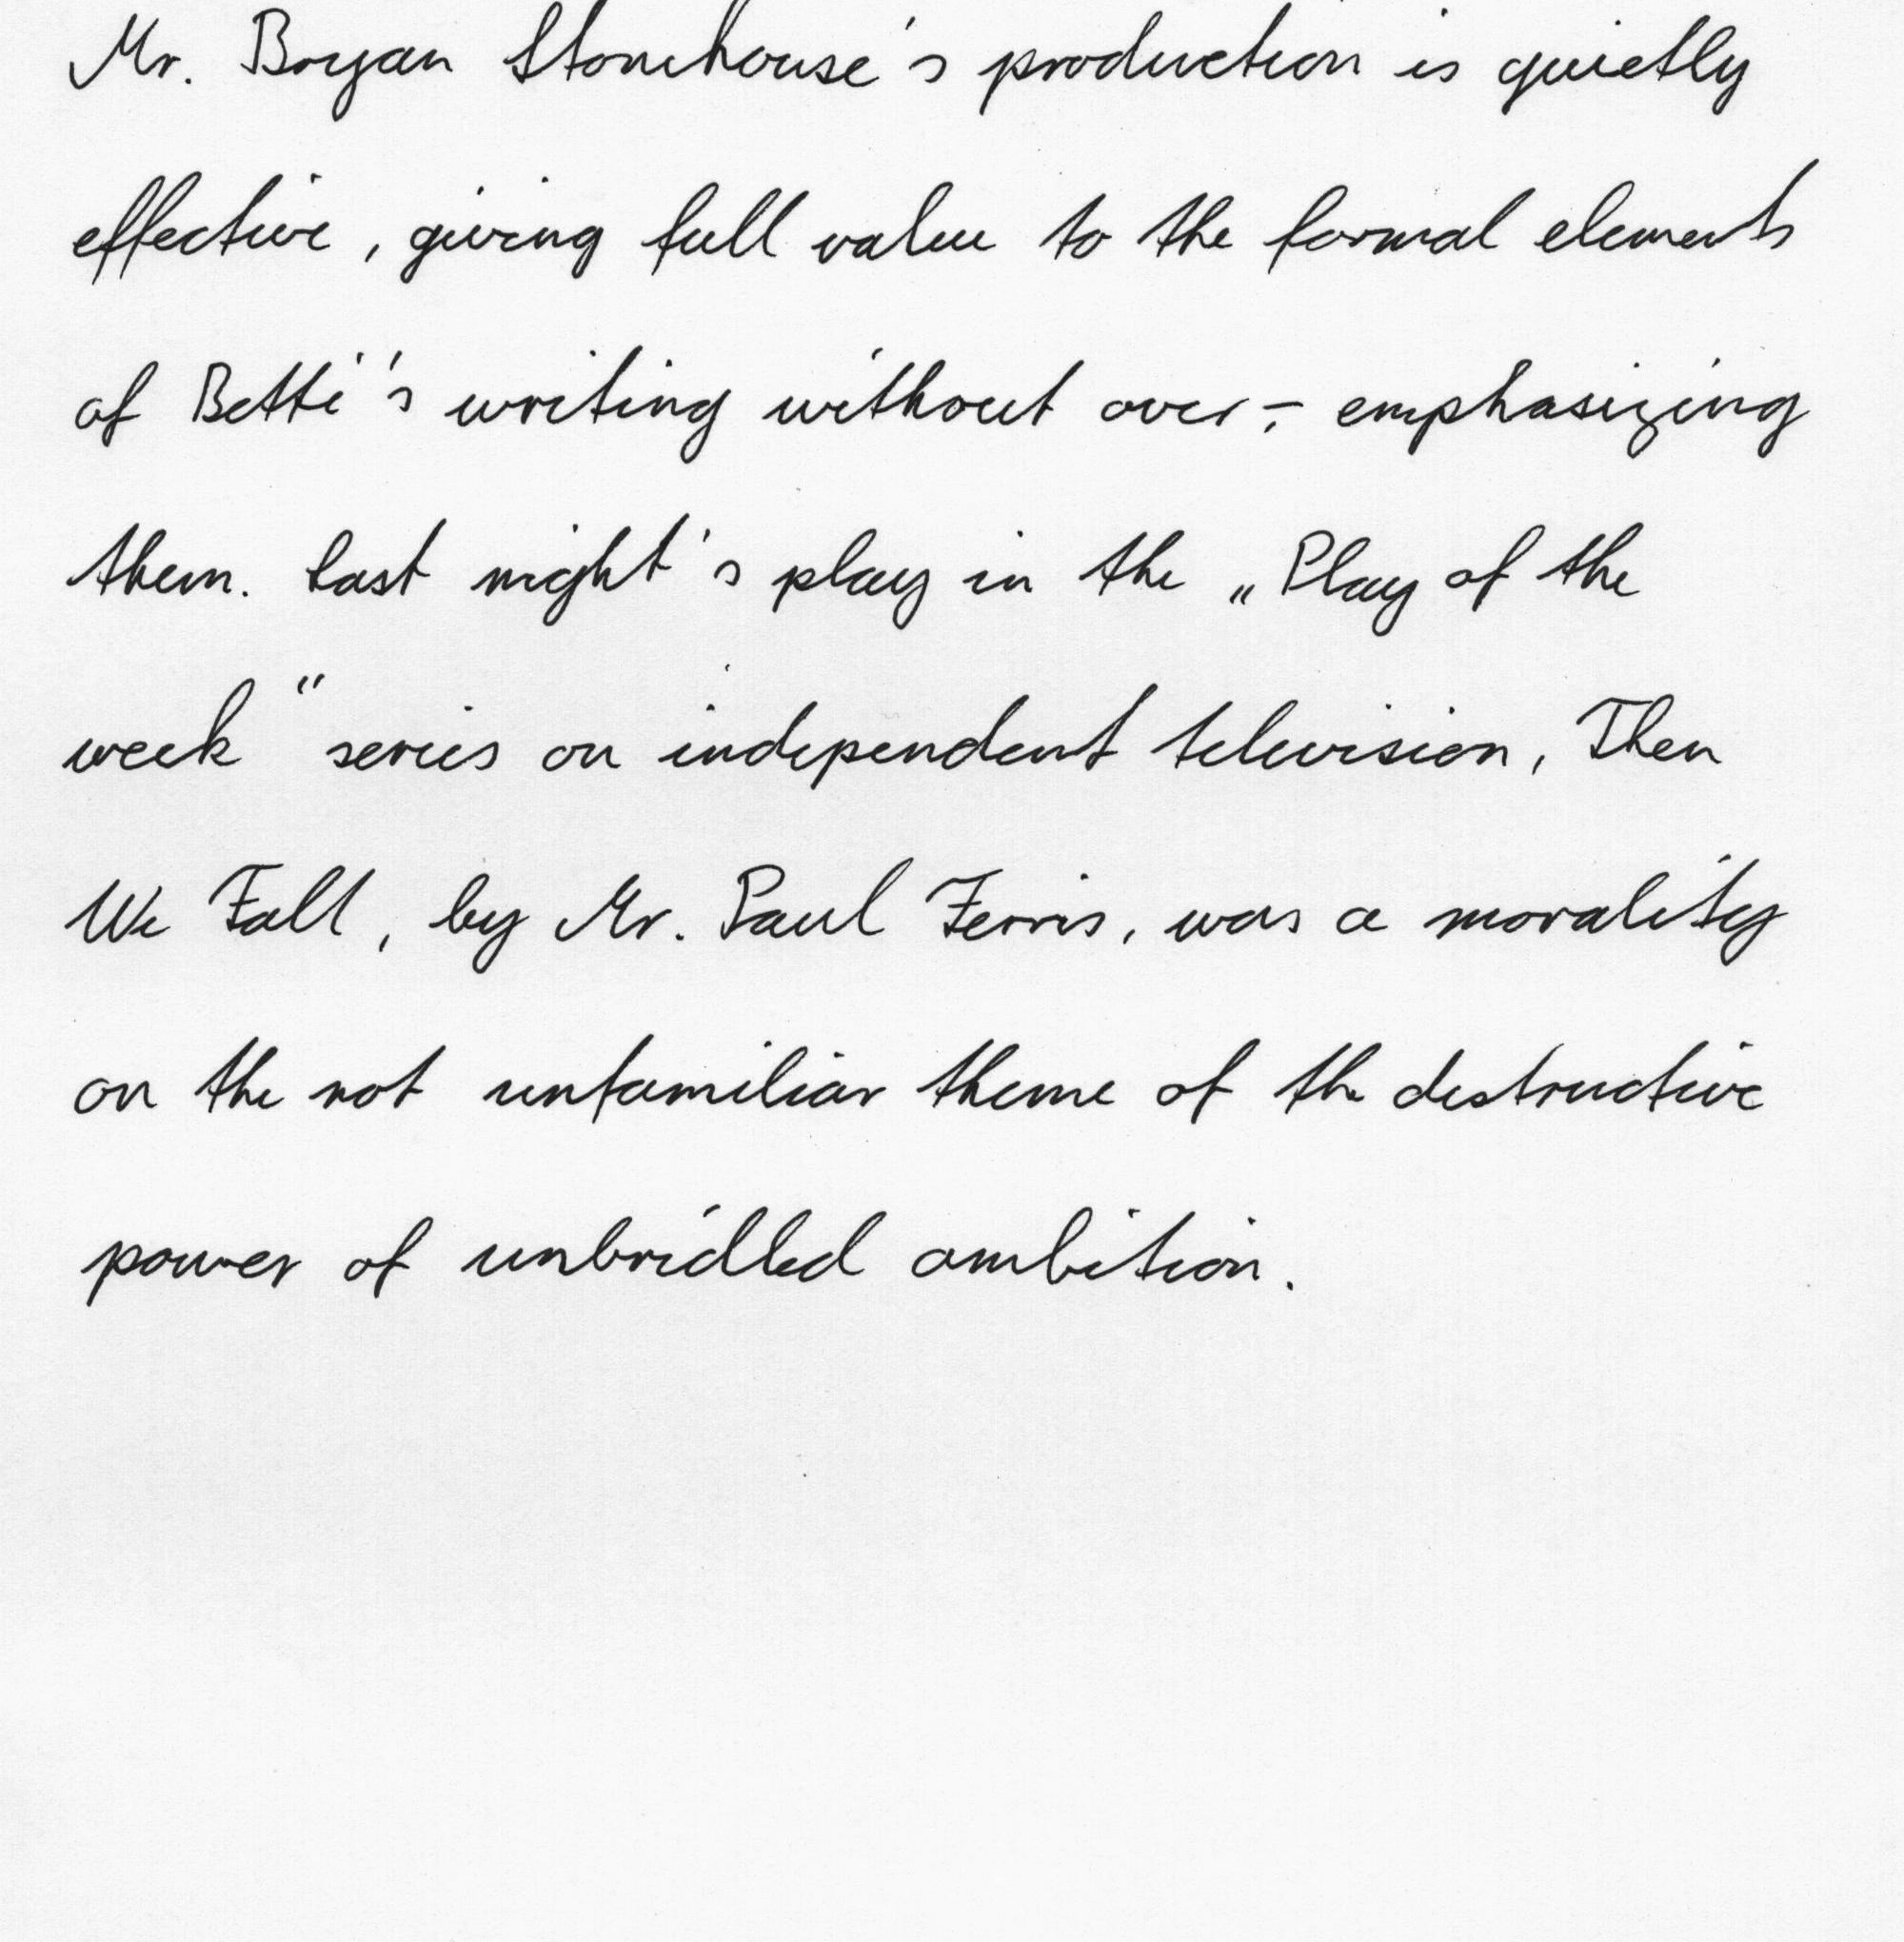 Mr. Bryan Stonehouse's production is quietly
effective, giving full value to the formal elements
of Betti's writing without over- emphasizing
them. Last night's play in the „Play of the
week“ series on independent television, Then
We Fall, by Mr. Paul Ferris, was a morality
on the not unfamiliar theme of the destructive
power of unbridled ambition.